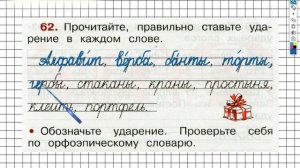 62. Прочитайте, правильно ставьте уда-
рение в каждом слове.
Алфави́т, ве́рба, ба́нты, то́рты,
гербы, стаканы, краны, простыня,
клеить, портфель.
• Обозначьте ударение. Проверьте себя
по орфоэпическому словарю.